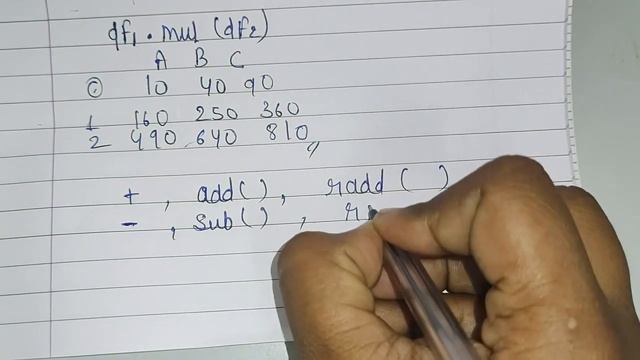 df1 . mul (df2)
A B C
0 10 40 90
1 160 250 360
2 490 640 810
+ , add( ) , radd ( )
- , sub( ) , r